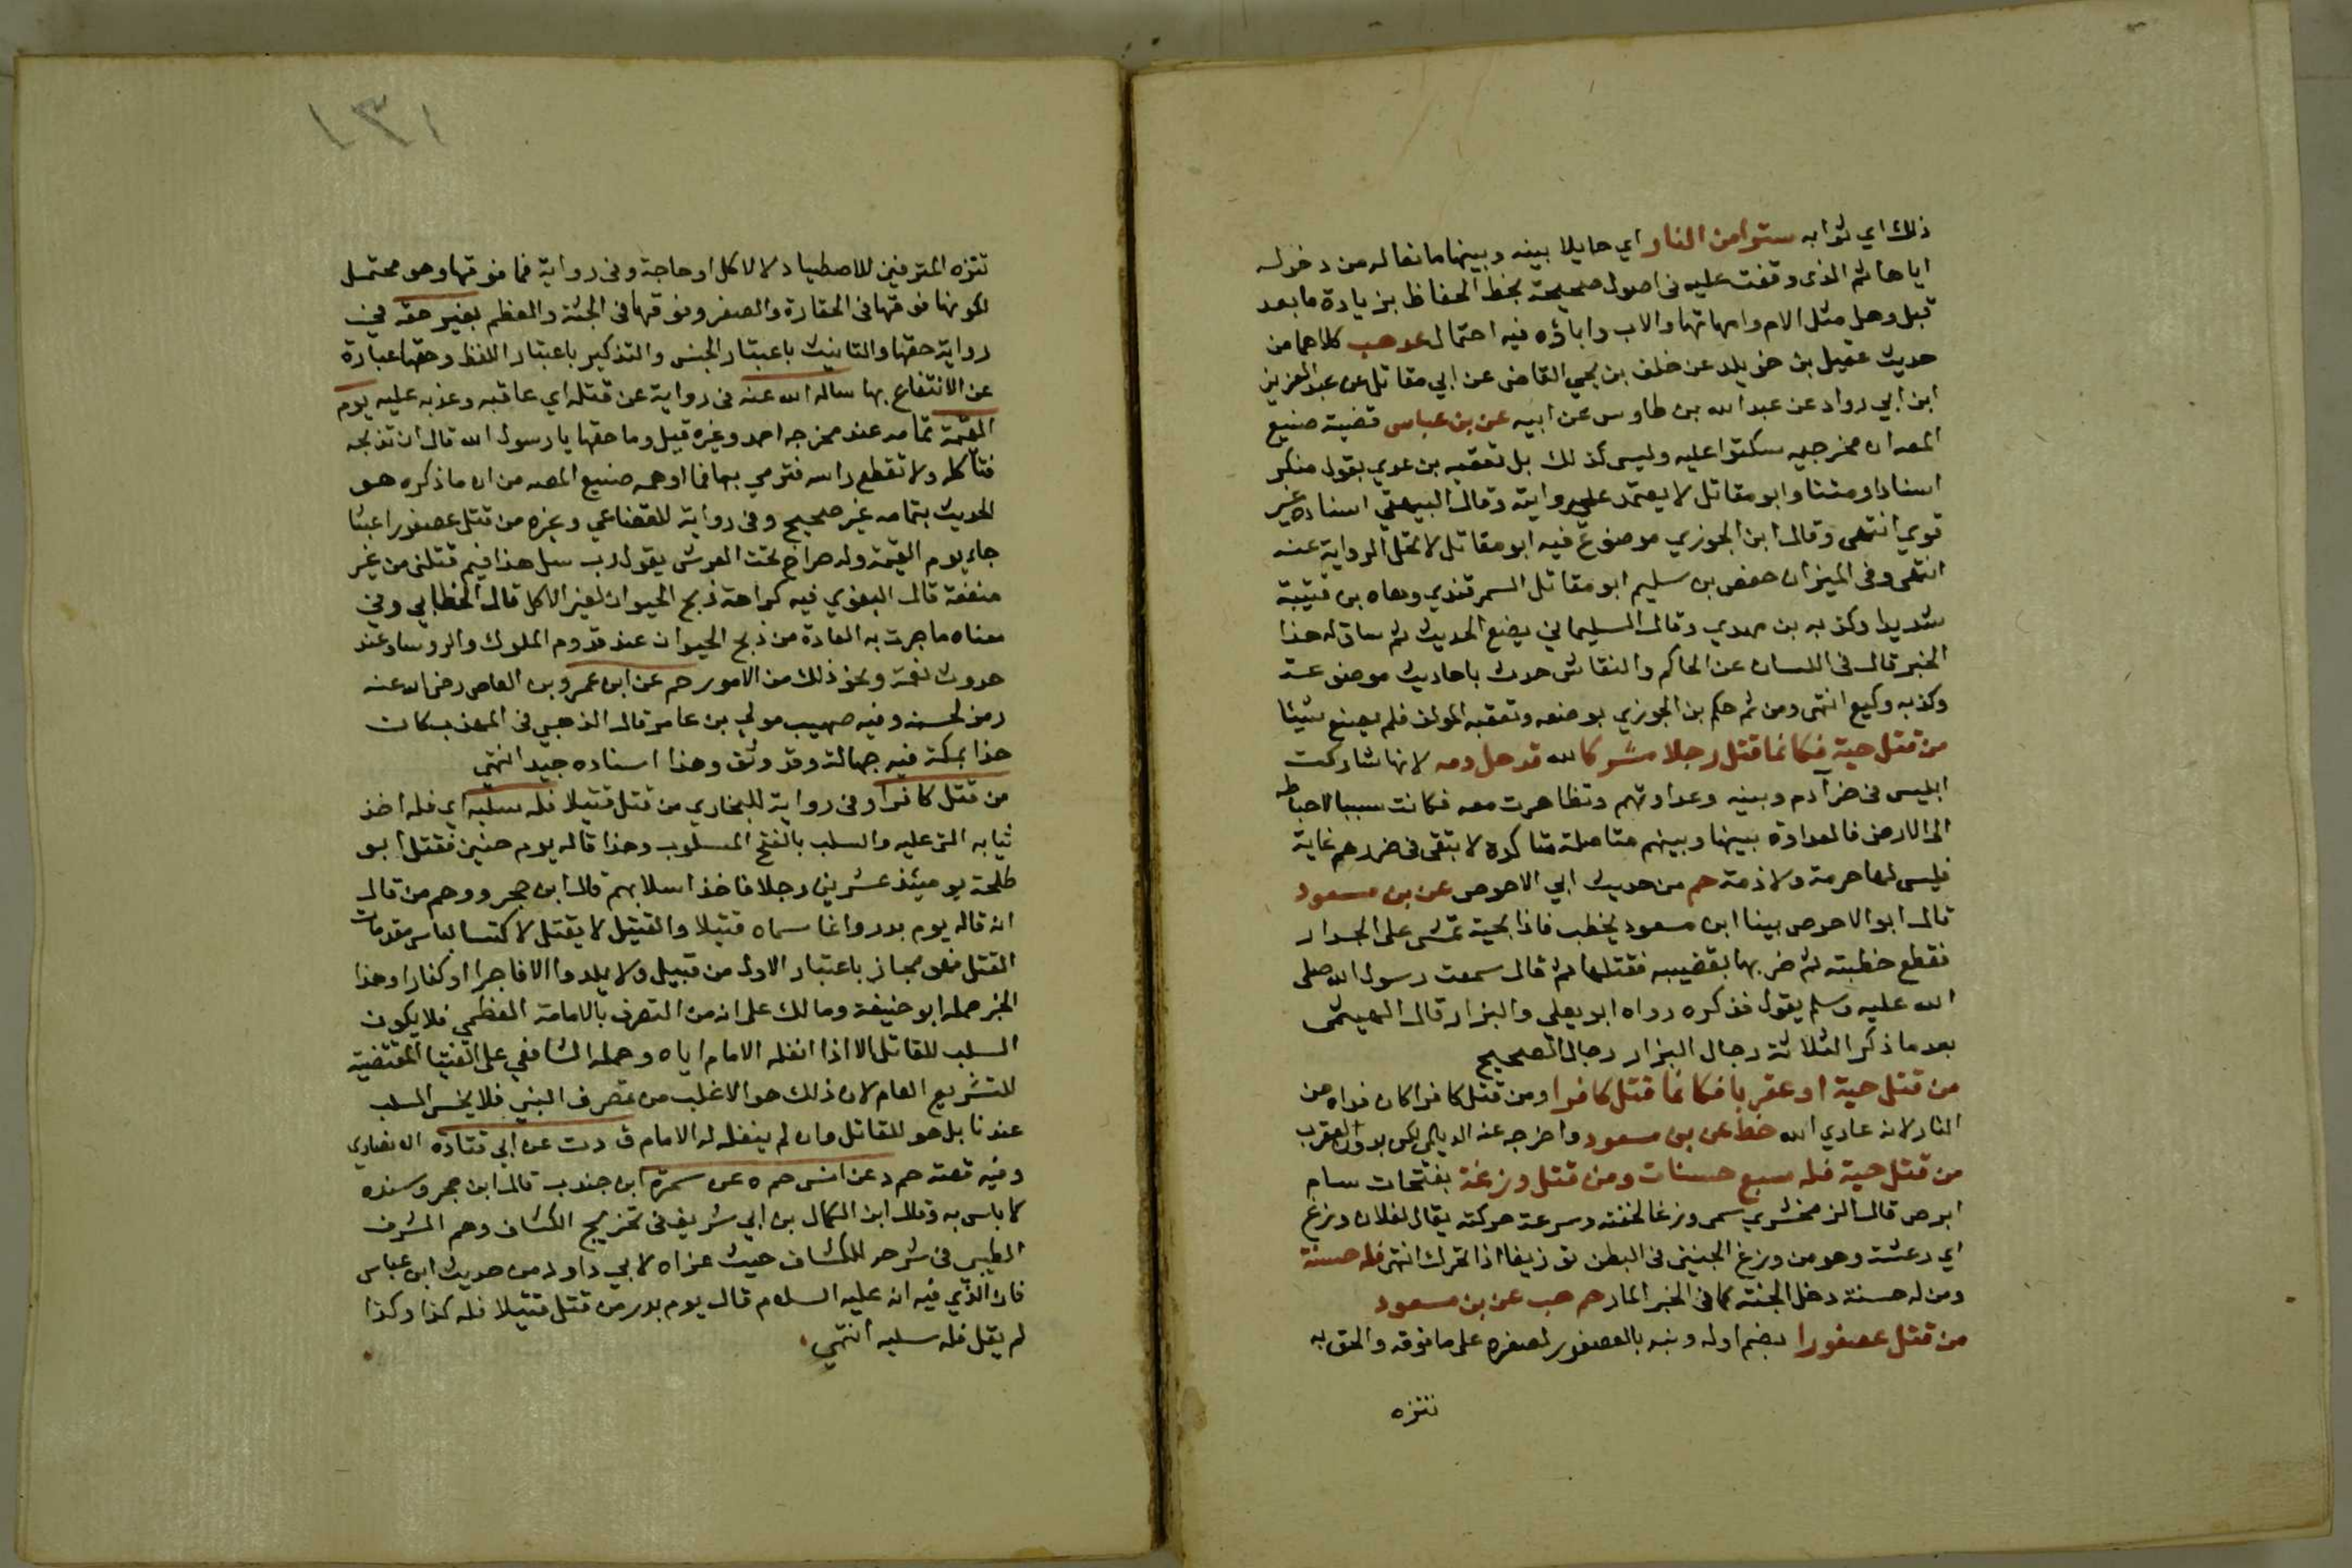 ذلك اي ثوابه سترا من النار اي حايلا بينه وبينها مانعا له من دخوله
اياها ثم الذي وقفت عليه في اصول صحيحة بخط الحفاظ بزيادة ما بعد
قبل وهل مثل الام وامهاتها والاب واباؤه فيه احتمال عد هب كلاهما من
حديث عقيل بن خويلد عن خلف بن يحيي القاضي عن ابي مقاتل عن عبد العزيز
ابن ابي رواد عن عبد الله بن طاوس عن ابيه عن بن عباس قضية صنيع
المصه ان مخرجيه سكتوا عليه وليس كذلك بل تعقبه بن عدي بقول منكر
اسنادا ومتنا وابو مقاتل لا يعتمد علي روايته وقال البيهقي اسناده غير
قوي انتهى وقال ابن الجوزي موضوع فيه ابو مقاتل لا تحل الرواية عنه
انتهى وفى الميزان حفص بن سليم ابو مقاتل السمرقندي وهاه بن قتيبة
شديدا وكذبه بن مهدي وقال السليماني يضع الحديث ثم ساق له هذا
الخبر قال في اللسان عن الحاكم والنقاش حدث باحاديث موضوعة
وكذبه وكيع انتهى ومن ثم حكم بن الجوزي بوضعه وتعقبه المولف فلم يصنع شيئا
من قتل حية فكانما قتل رجلا مشركا لله قد حل دمه لانها شاركت
ابليس فى ضر آدم وبنيه وعداوتهم وتظاهرت معه فكانت سببا لاهباطه
الى الارض فالعداوة بينها وبينهم متاصلة متاكدة لا تبقى فى ضررهم غاية
فليس لها حرمة ولا ذمة حم من حديث ابي الاحوص عن بن مسعود
قال ابو الاحوص بينا ابن مسعود يخطب فاذا بحية تمشى على الجدار
فقطع خطبته ثم ضربها بقضيبه فقتلها ثم قال سمعت رسول الله صلى
الله عليه وسلم يقول فذكره رواه ابو يعلي والبزار قال الهيثمى
بعد ما ذكر الثلاثة رجال البزار رجال الصحيح
من قتل حية او عقربا فكانما قتل كافرا ومن قتل كافرا كان فداه من
النار لانه عادي الله خط عن بن مسعود واخرجه عنه الديلمي لكن بدون العقرب
من قتل حية فله سبع حسنات ومن قتل وزغة بفتحات سام
ابرص قال الزمخشري سمى وزغا لخفته وسرعة حركته يقال لفلان وزغ
اي رعشة وهو من وزغ الجنين فى البطن توزيغا اذا تحرك انتهى فله حسنة
ومن له حسنة دخل الجنة كما فى الخبر المار حم حب عن بن مسعود
من قتل عصفورا بضم اوله ونبه بالعصفور لصغره على ما فوقه والحق به
تنزه
١٣١
تنزه المترفين للاصطياد لا لاكل او حاجة وفى رواية فما فوقها وهو محتمل
لكونها فوقها فى الحقارة والصغر وفوقها فى الجثة والعظم بغير حقه في
رواية حقها والتانيث باعتبار الجنس والتذكير باعتبار اللفظ وحقها عبارة
عن الانتفاع بها ساله الله عنه فى رواية عن قتله اي عاقبه وعذبه عليه يوم
القيمة تمامه عند مخرجه احمد وغيره قيل وما حقها يا رسول الله قال ان تذبحه
فتأكله ولا تقطع راسه فترمي بها فما اوهمه صنيع المصه من ان ما ذكره هو
الحديث بتمامه غير صحيح وفى رواية للقضاعي وغيره من قتل عصفورا عبثا
جاء يوم القيمة وله صراخ تحت العرش يقول رب سل هذا فيم قتلنى من غير
منفعة قال البغوي فيه كراهة ذبح الحيوان لغير الاكل قال الخطابي وفي
معناه ما جرت به العادة من ذبح الحيوان عند قدوم الملوك والروسا وعند
حدوث نعمة ونحو ذلك من الامور حم عن ابن عمرو بن العاص رضى الله عنه
رمز لحسنه وفيه صهيب مولي بن عامر قال الذهبي فى المهذب كان
حذا بمكة فيه جهالة وقد وثق وهذا اسناده جيد انتهي
من قتل كافرا وفى رواية للبخاري من قتل قتيلا فله سلبه اي فله اخذ
ثيابه التى عليه والسلب بالفتح المسلوب وهذا قاله يوم حنين فقتل ابو
طلحة يوميئذ عشرين رجلا فاخذ اسلابهم قال ابن حجر ووهم من قال
انه قاله يوم بدر وانما سماه قتيلا والقتيل لا يقتل لاكتسا لباس مقدمات
القتل فهو مجاز باعتبار الاول من قبيل ولا يلدوا الا فاجرا او كفارا وهذا
الخبر حمله ابو حنيفة ومالك على انه من التصرف بالامامة العظمي فلا يكون
السلب للقاتل الا اذا انفله الامام اياه وحمله الشافعي على الفتيا المقتضية
للتشريع العام لان ذلك هو الاغلب من تصرف النبي فلا يخمس السلب
عندنا بل هو للقاتل وان لم ينفله له الامام ق د ت عن ابي قتادة الانصاري
وفيه قصة حم د عن انس حم ه عن سمرة ابن جندب قال ابن حجر وسنده
لا باس به وقال ابن الكمال بن ابي شريف فى تخريج الكشاف وهم الشرف
الطيبي فى شرحه للكشاف حيث عزاه لابي داود من حديث ابن عباس
فان الذي فيه انه عليه السلام قال يوم بدر من قتل قتيلا فله كذا وكذا
لم يقل فله سلبه انتهي